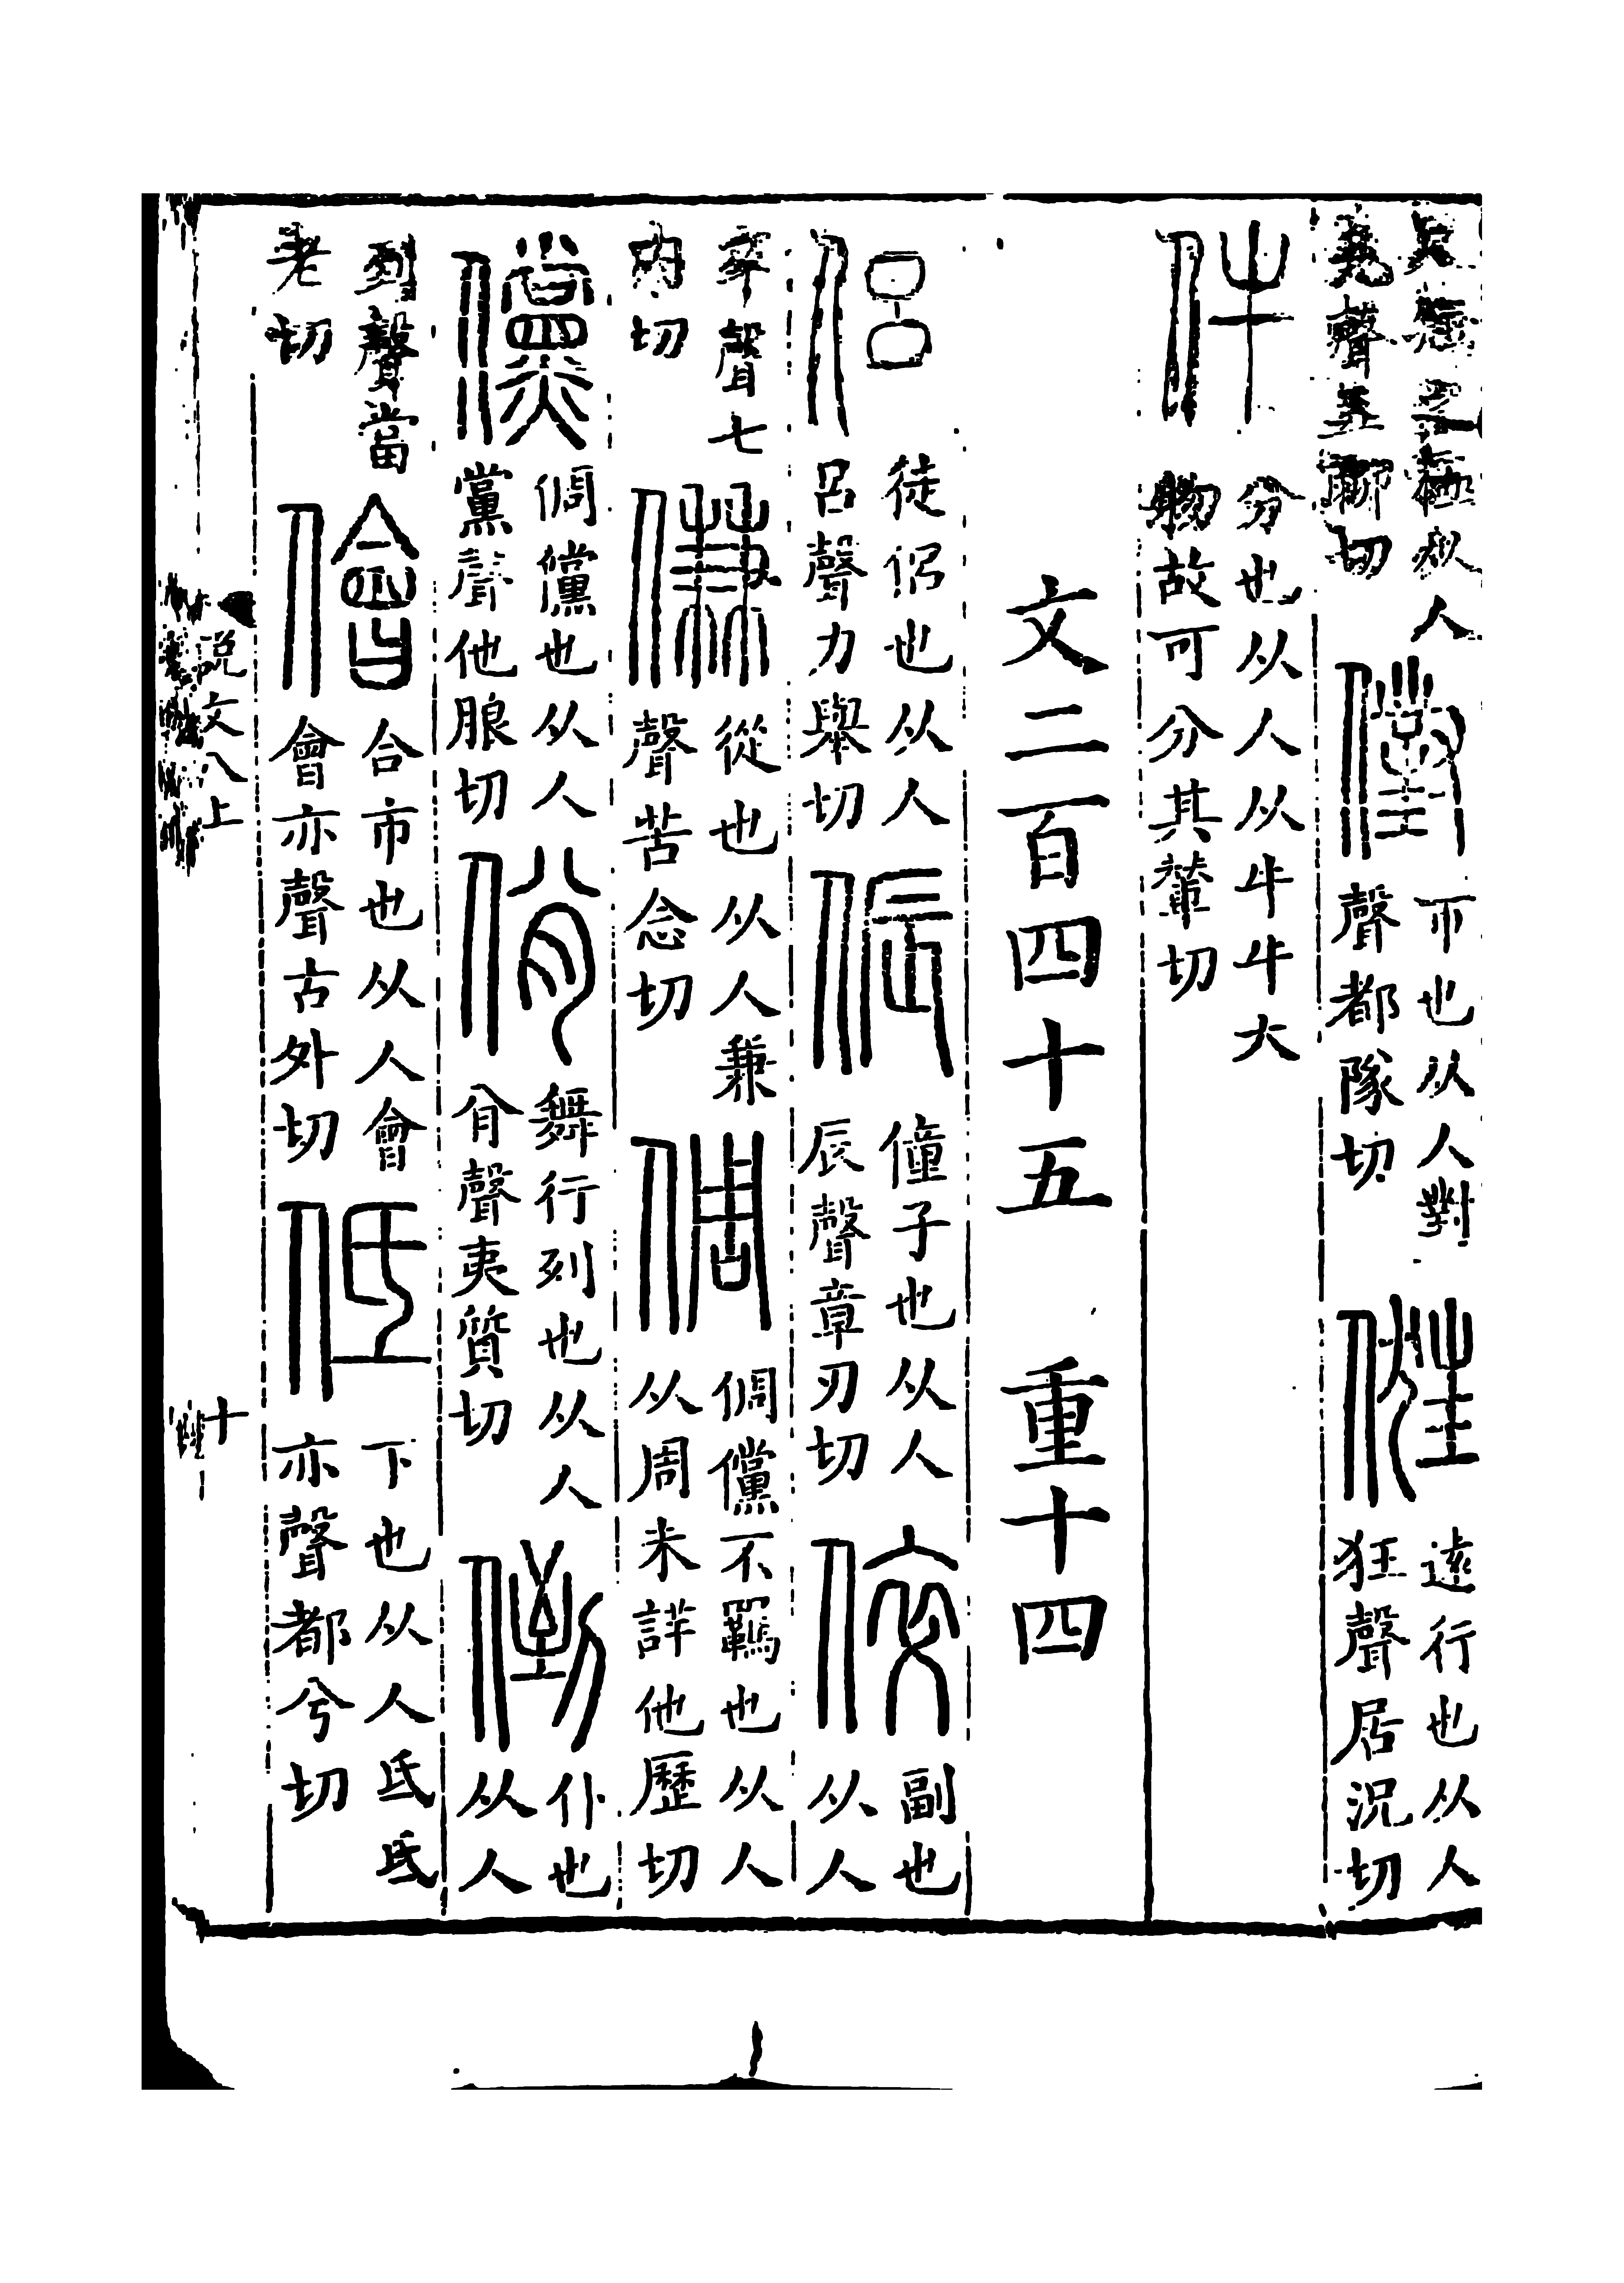 短之極从人
堯聲五聊切
巿也从人對
聲都隊切
遠行也从人
狂聲居況切
件
分也从人从牛牛大
物故可分其輦切
文二百四十五 重十四
侶
徒侶也从人
呂聲力舉切
侲
僮子也从人
辰聲章刃切
倅
副也
从人
卒聲七
內切
傔
從也从人兼
聲苦念切
倜
倜儻不羈也从人
从周未詳他歷切
儻
倜儻也从人
黨聲他朖切
佾
舞行列也从人
䏌聲夷質切
倒
仆也
从人
到聲當
老切
儈
合市也从人會
會亦聲古外切
低
下也从人氐氐
亦聲都兮切
說文八上
十